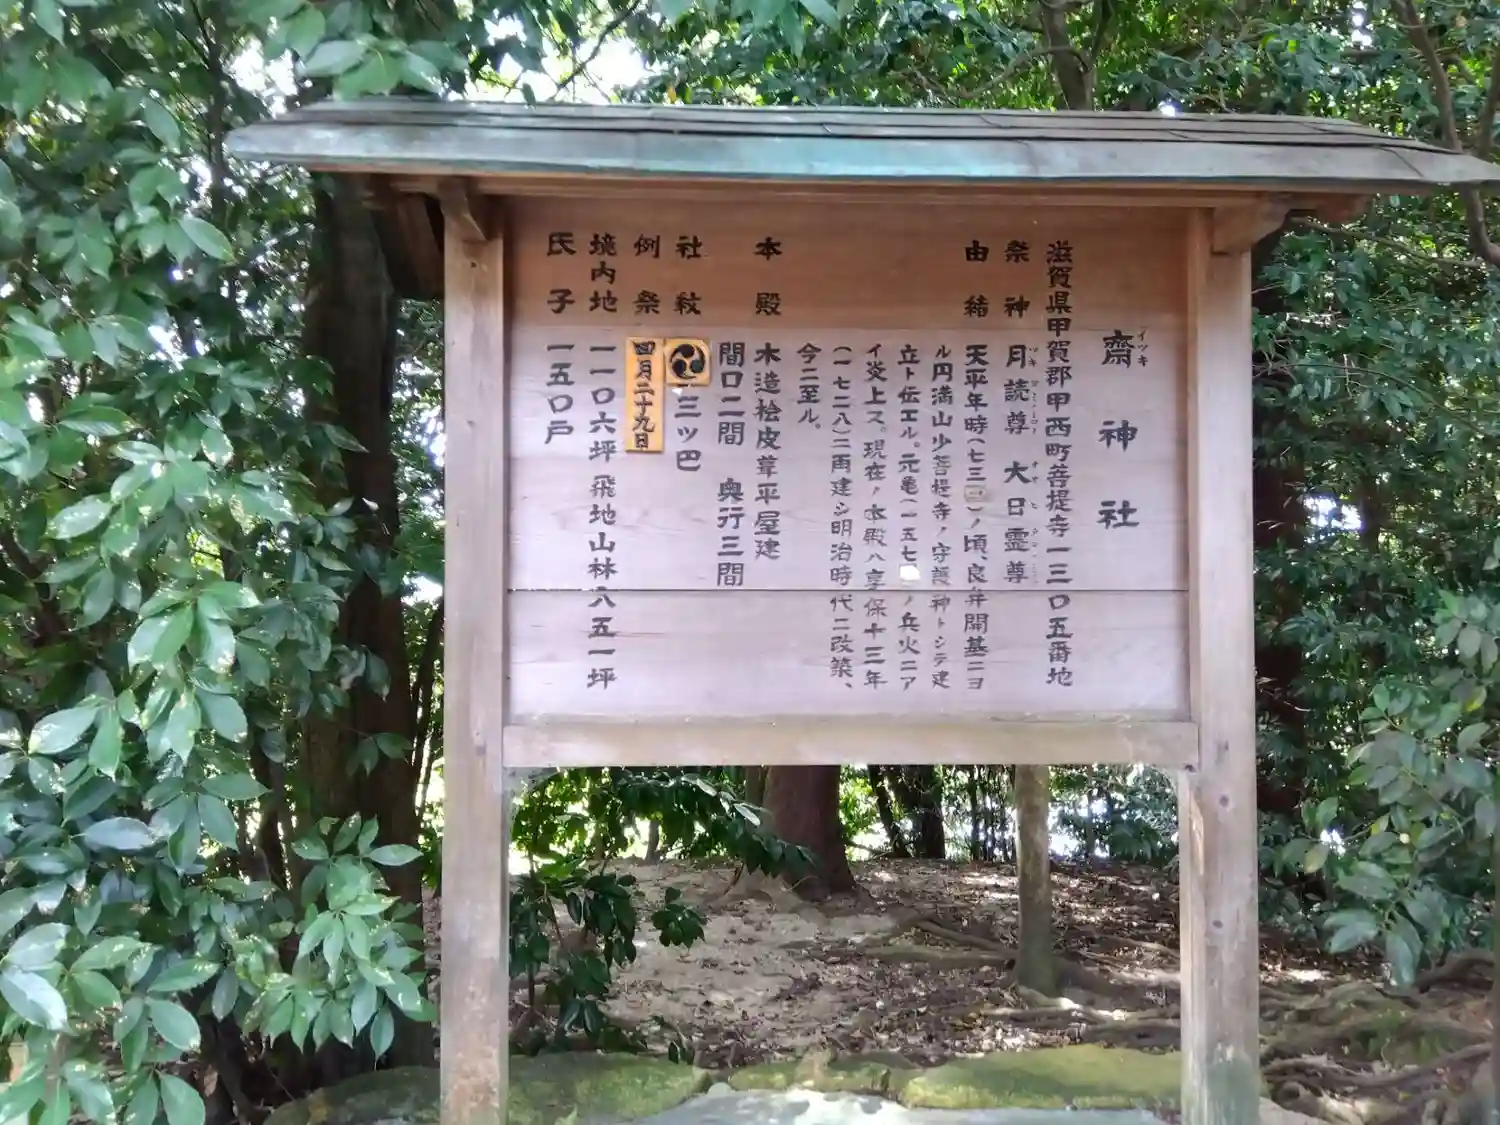 齋神社
イツキ
滋賀県甲賀郡甲西町菩提寺一三〇五番地
祭神 月読尊 大日霊尊
由緒 天平年時(七三 )ノ頃、良弁開基ニヨ
ル円満山少菩提寺ノ守護神トシテ建
立ト伝エル。元亀(一五七 ノ兵火ニア
イ炎上ス。現在ノ本殿ハ享保十三年
(一七二八)ニ再建シ明治時代ニ改築、
今ニ至ル。
本殿 木造桧皮葺平屋建
間口二間 奥行三間
社紋 三ッ巴
例祭 四月二十九日
境内地 一一〇六坪 飛地山林八五一坪
氏子 一五〇戸